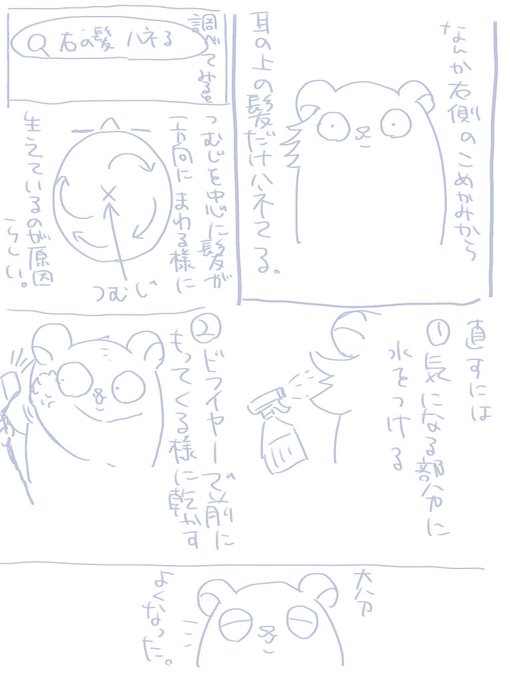 なんか右側のこめかみから
耳の上の髪だけハネてる。
調べてみる
右の髪 ハネる
つむじを中心に髪が
一方向にまわる様に
生えているのが原因
らしい。
つむじ
直すには
①気になる部分に
水をつける
②ドライヤーで前に
もってくる様に乾かす
大分
よくなった。